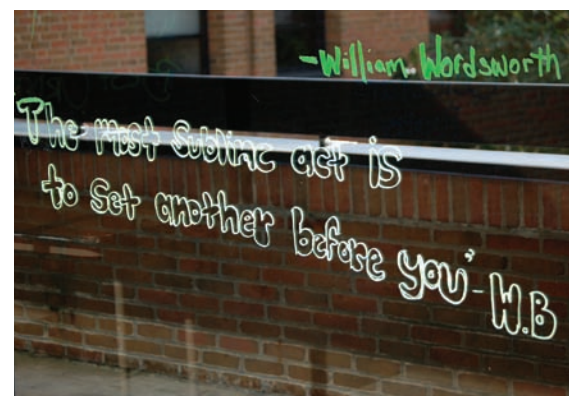 -William Wordsworth
The most sublime act is
to set another before you" -W.B